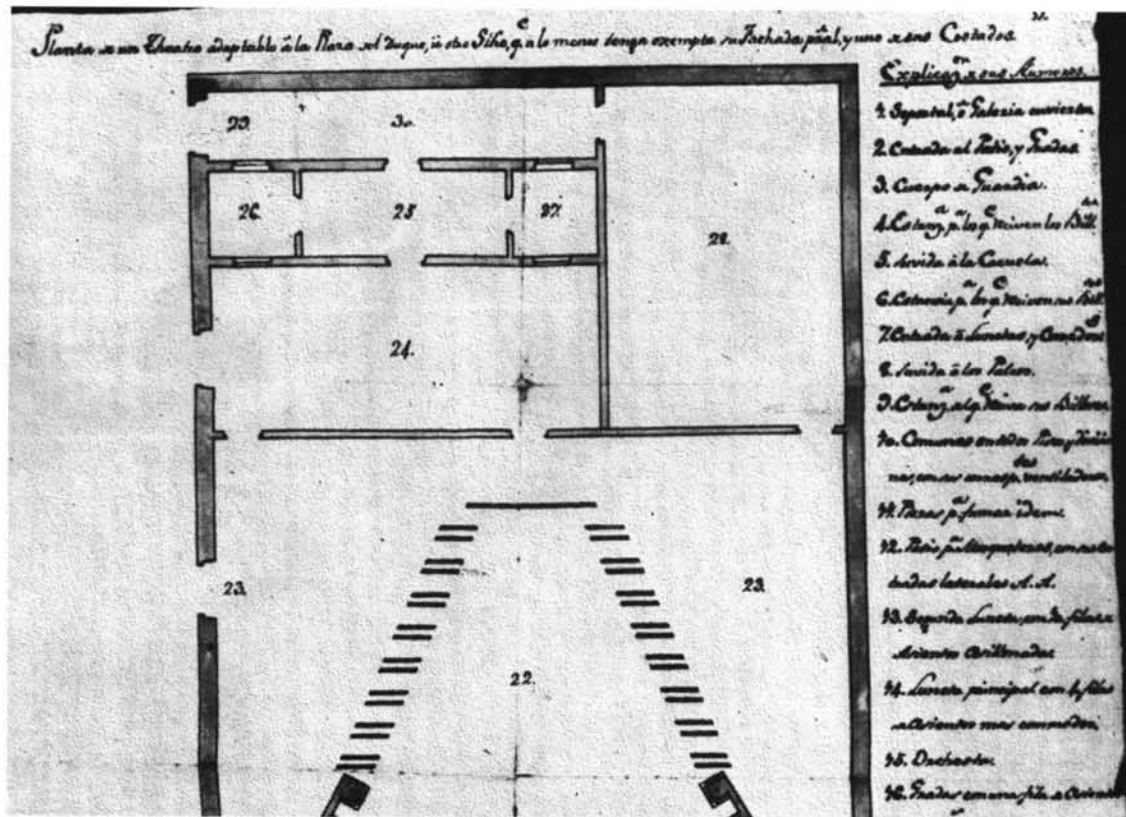 Planta de un Theatro adaptable â la Plaza del Duque, û otro Sitio, q.e a lo menos tenga exempta su Fachada pral, y uno de sus Costados.
Explicaz.on de sus Numeros.
1. Soportal, ô Galeria cubierta
2. Entrada al Patio, y Gradas
3. Cuerpo de Guardia.
4. Estanz.a p.a los q.e reciven los Bill.tes
5. Subida â la Cazuela.
6. Estancia p.a los q.e reciven sus Bill.tes
7. Entrada â Lunetas, y
8. Subida â los Palcos.
9. Estanz.a el q.e recive sus Billetes
10. Comunes en todos Pisos, y
nas, con sus ventiladores
11. Piezas p.a fumar idem.
12. Patio p.a Mosqueteros, con sus en
tradas laterales A. A.
13. Segunda Luneta, con filas de
Asientos
14. Luneta principal con 4 filas
de Asientos mas commodos.
15. Orchesta.
16. Gradas con una fila de Asientos
29.
30.
26.
25
27.
28.
24.
23.
23.
22.